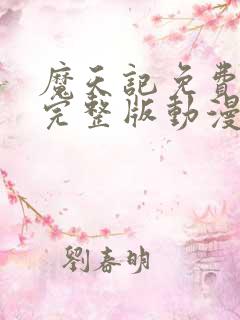 魔天記免費
完整版動漫
劉春明